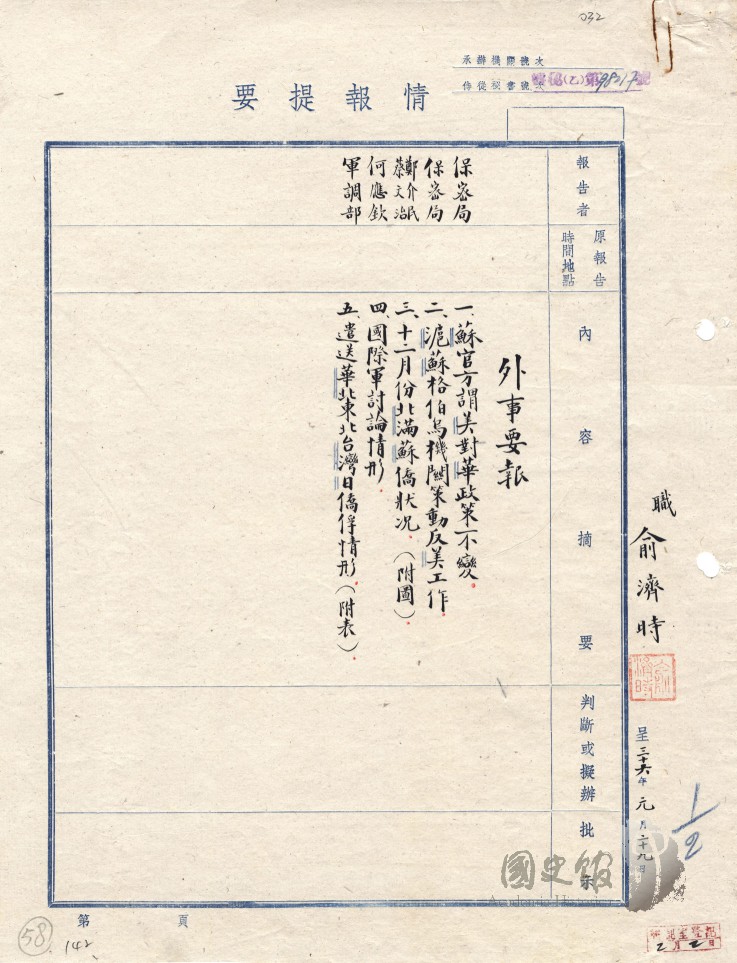 032
承辦機關號次
侍從秘書號次
(乙)第98217號
情報提要
報告者
保密局
保密局
鄭介民
蔡文治
何應欽
軍調部
原報告
時間地點
內容摘要
外事要報
一、蘇官方謂美對華政策不變.
二、滬蘇格伯烏機關策動反美工作.
三、十二月份北滿蘇僑狀況.(附圖).
四、國際軍討論情形.
五、遣送華北東北台灣日僑俘情形(附表).
判斷或擬辦
批示
職 俞濟時
俞濟時
呈 三十六年元月二十九日
1/2
國史館
Academia Historica
第 頁
58
142
2月2日